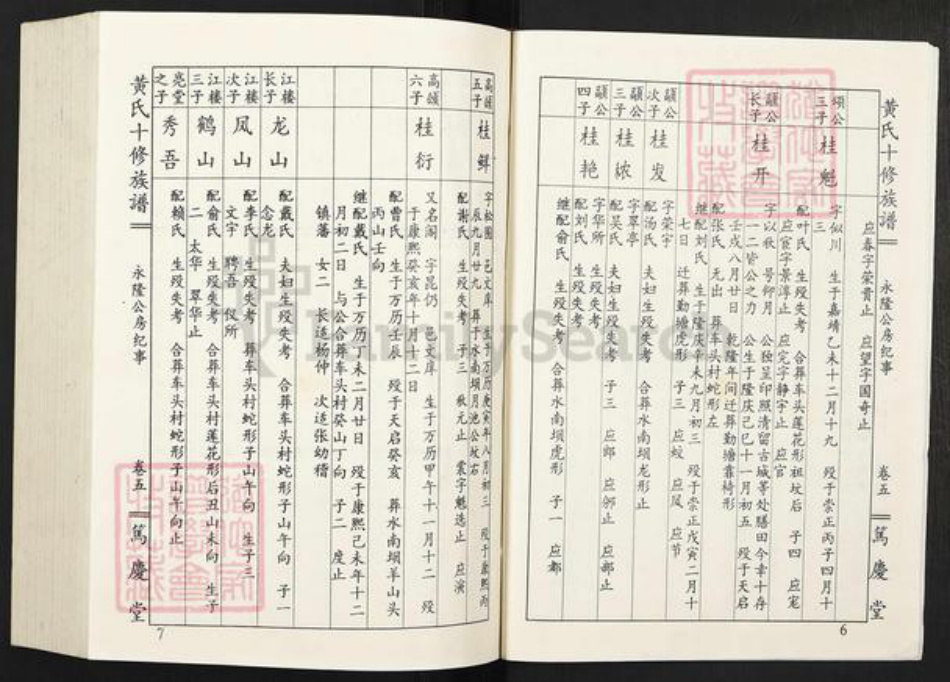 黄氏十修族谱
永隆公房纪事
卷五
篤慶堂
6
应春字荣贵止 应望字国奇止
颂公三子
桂魁
字似川 生于嘉靖乙未十二月十九 殁于崇正丙子四月十三
配叶氏 生殁失考 合葬车头莲花形祖坟后 子四 应宠
应宦字景淳止 应完字静宇止 应官
颛公长子
桂开
字以秋 号仰月 公独呈印照清留古城等处膳田今幸十存
一二皆公之力 公生于隆庆己巳十一月初五 殁于天启
壬戌八月廿日 乾隆年间迁葬勤塘靠椅形
配张氏 无出 葬车头村蛇形左
继配刘氏 生于隆庆辛未九月初三 殁于崇正戊寅二月十
七日 迁葬勤塘虎形 子三 应蛟 应凤 应节
颛公次子
桂发
字荣宇
配汤氏 夫妇生殁失考 合葬水南坝龙形止
颛公三子
桂秾
字翠亭
配吴氏 夫妇生殁失考 子三 应郎 应邠止 应邮止
颛公四子
桂艳
字华所
配刘氏 生殁失考
继配俞氏 生殁失考 合葬水南坝虎形 子一 应都
黄氏十修族谱
永隆公房纪事
卷五
篤慶堂
7
五子
桂鲜
字松园 邑文庠 生于万历庚寅年八月初三 殁于康熙丙
辰九月廿九 葬于水南坝月池公坟右
配谢氏 生殁失考 子三 秋元止 霖字魁选止 应演
六子
桂衍
又名阁 字昆仍 邑文庠 生于万历甲午十一月十二 殁
于康熙癸亥年十月十二日
配曹氏 生于万历壬辰 殁于天启癸亥 葬水南坝羊山头
丙山壬向
继配戴氏 生于万历丁未二月廿日 殁于康熙己未年十二
月初二日 与公合葬车头村癸山丁向 子二 度止
镇藩 女二 长适杨仲 次适张幼稽
江楼长子
龙山
配戴氏 夫妇生殁失考 合葬车头村蛇形子山午向 子一
念龙
江楼次子
凤山
配李氏 生殁失考 葬车头村蛇形子山午向 生子三
文宇 聘吾 仪所
江楼三子
鹤山
配俞氏 生殁失考 合葬车头村莲花形后丑山未向 生子
二 太华 翠华止
亮堂之子
秀吾
配赖氏 生殁失考 合葬车头村蛇形子山午向止
FamilySearch